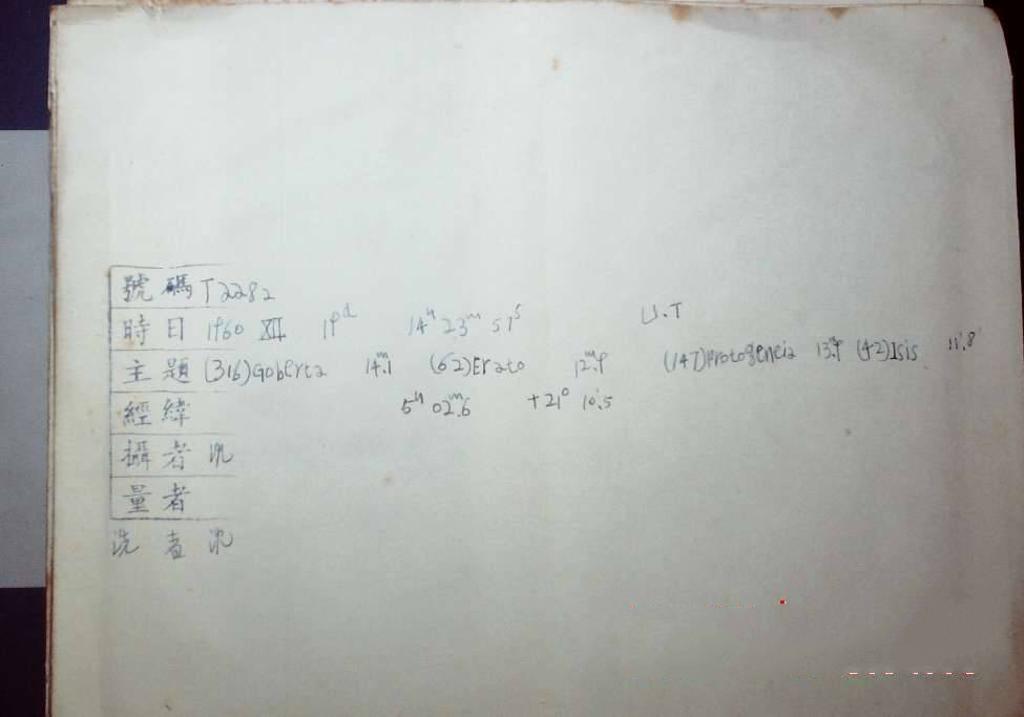 號碼 T2282
時日 1960 XII 19ᵈ 14ʰ 23ᵐ 51ˢ U.T
主題 (316)Goberta 14ᵐ.1 (62)Erato 12ᵐ.9 (147)Protogeneia 13ᵐ.9 (42)Isis 11.8
經緯 5ʰ 02ᵐ.6 +21° 10.5
攝者 沈
量者
洗者 沈